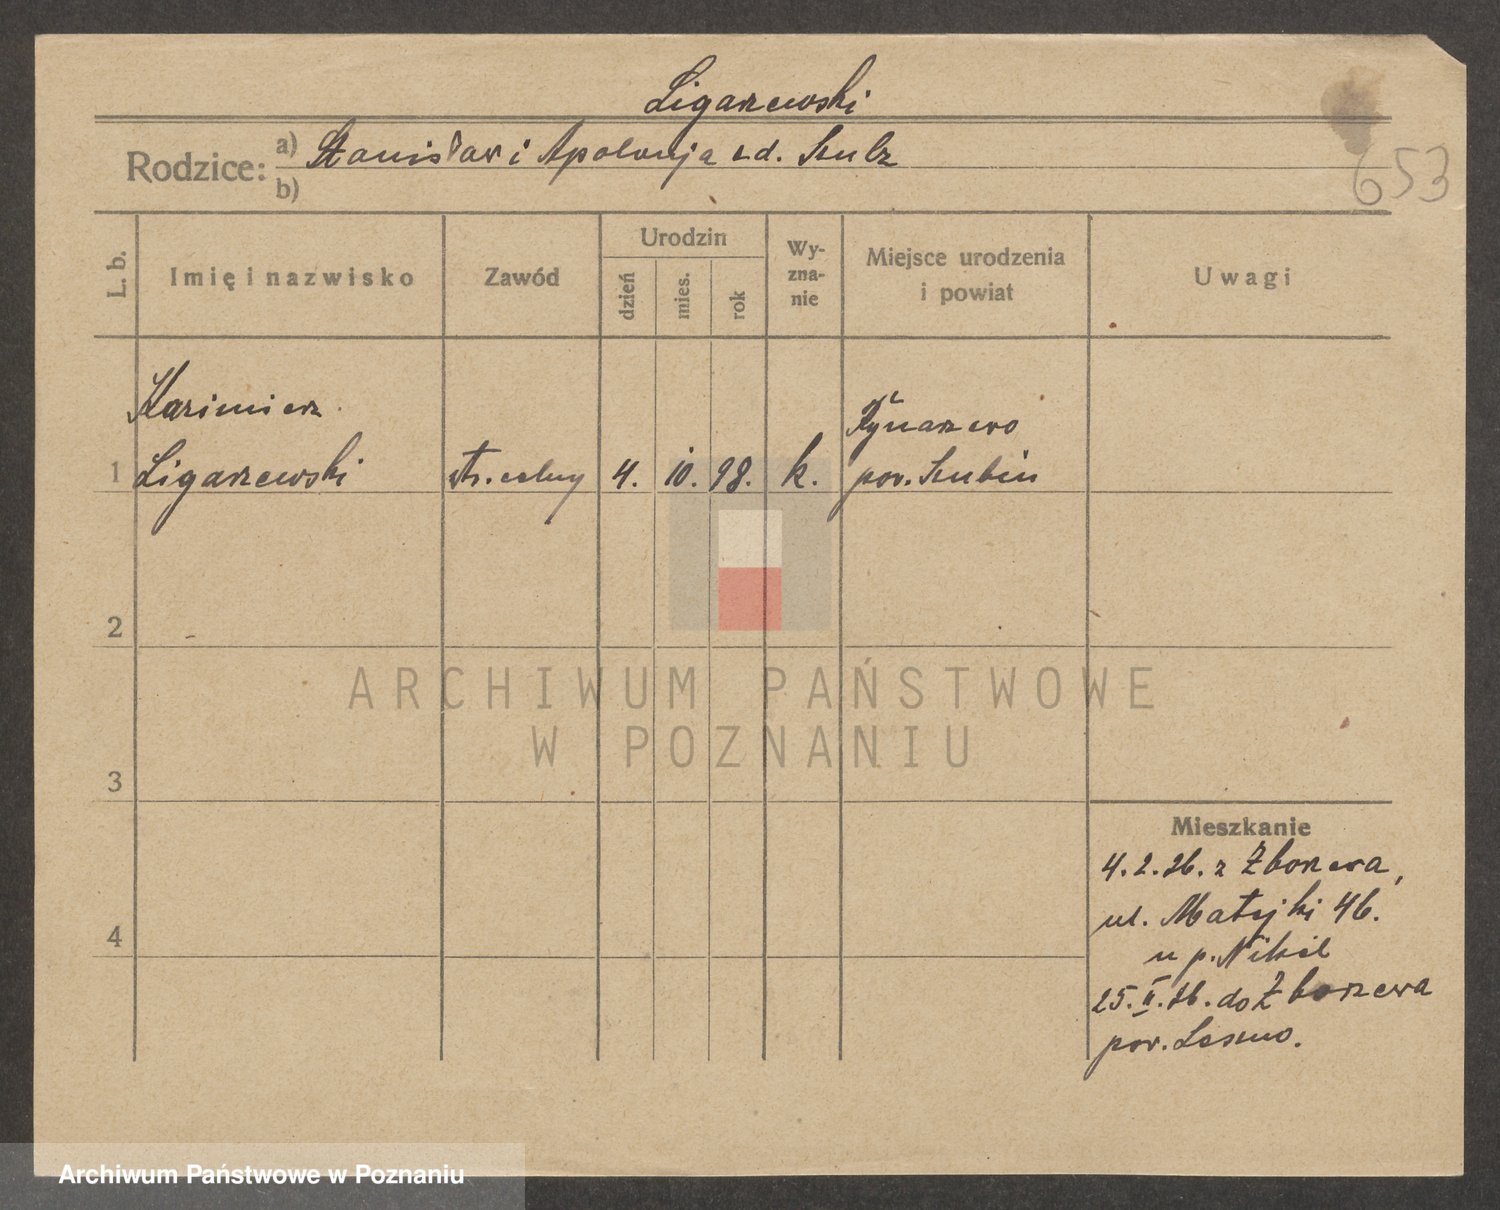 Ligarzewski
Rodzice: a) Stanisław i Apolonja zd. Szulz
b)
653
L. b.
Imię i nazwisko
Zawód
Urodzin
dzień
mies.
rok
Wy-
zna-
nie
Miejsce urodzenia
i powiat
Uwagi
Kazimierz
Ligarzewski
1
str. celny
4.
10.
98.
k.
Rynarzewo
pow. Szubin
2
3
4
Mieszkanie
4.2.26. z Zborzewa,
ul. Matejki 46.
u p.
25.II.26. do Zborzewa
pow. Leszno.
ARCHIWUM PAŃSTWOWE
W POZNANIU
Archiwum Państwowe w Poznaniu